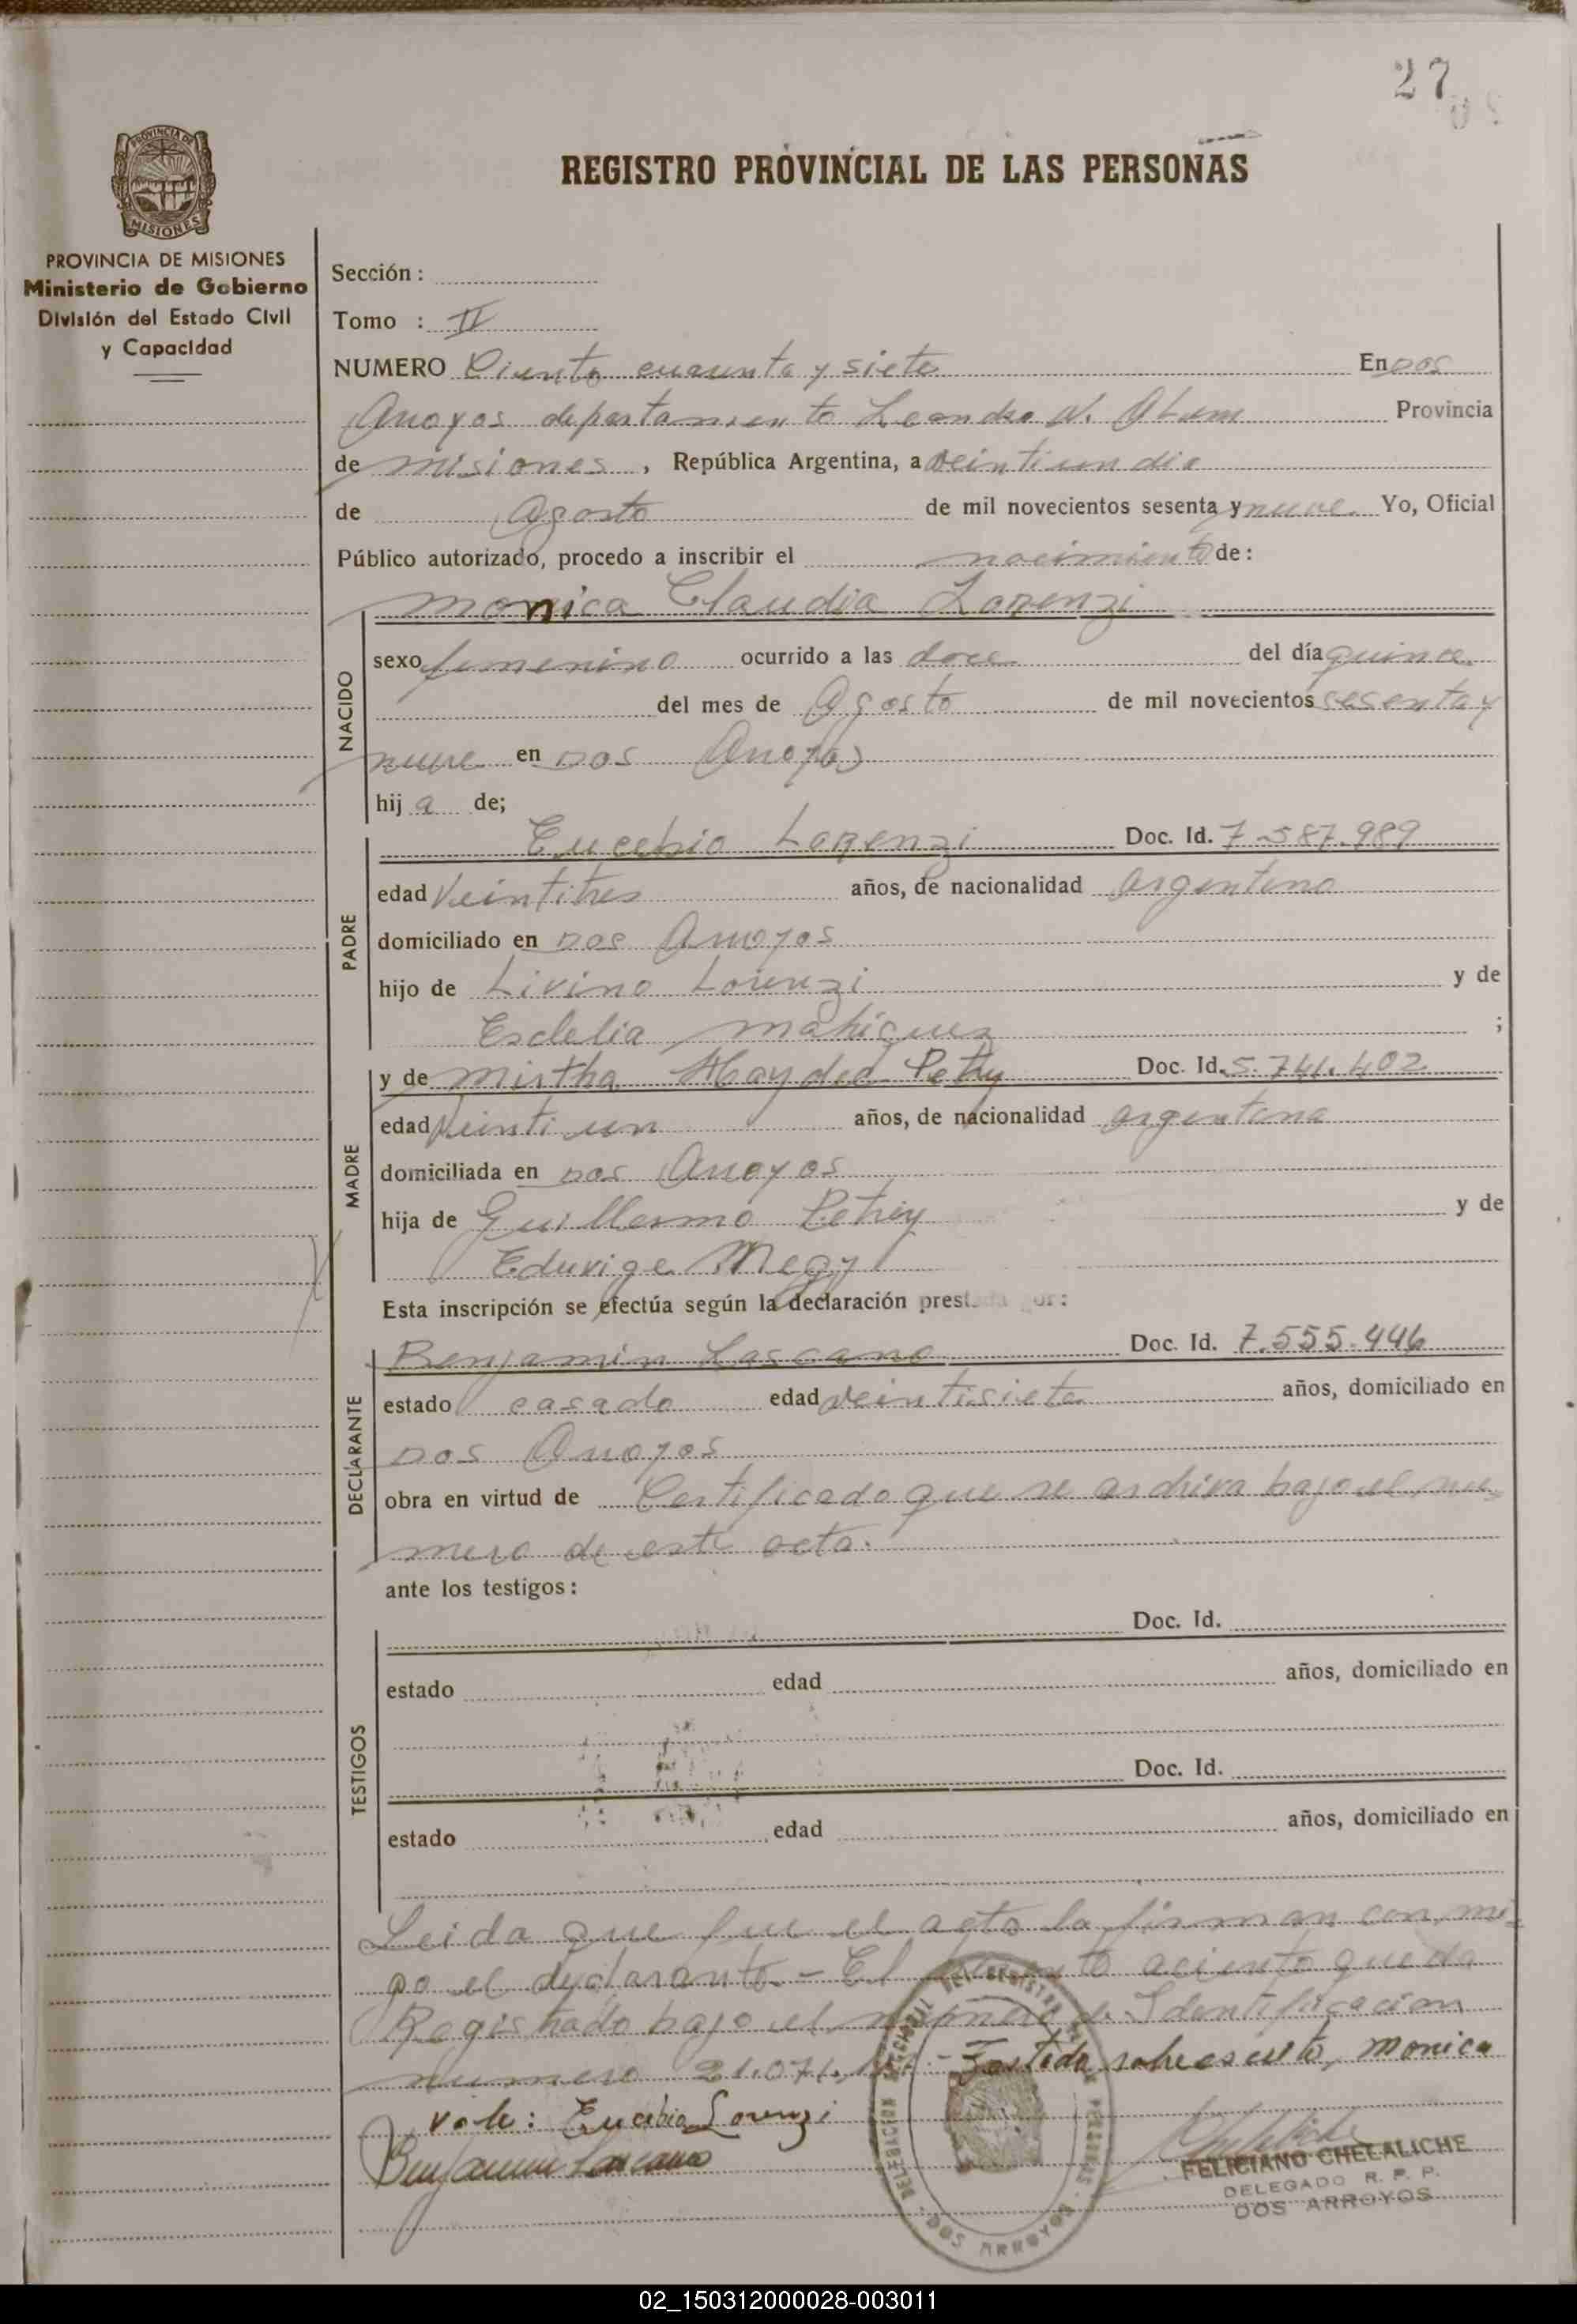 27
REGISTRO PROVINCIAL DE LAS PERSONAS
PROVINCIA DE
MISIONES
PROVINCIA DE MISIONES
Ministerio de Gobierno
División del Estado Civil
y Capacidad
Sección :
Tomo : II
NUMERO Ciento cuarenta y siete En Dos
Arroyos departamento Leandro N. Alem Provincia
de misiones , República Argentina, a veintiun dia
de Agosto de mil novecientos sesenta y nueve Yo, Oficial
Público autorizado, procedo a inscribir el nacimiento de :
monica Claudia Lorenzi
NACIDO
sexo femenino ocurrido a las doce del día quince
del mes de Agosto de mil novecientos sesenta y
nueve en Dos Arroyos
hij a de;
PADRE
Eucebio Lorenzi Doc. Id. 7.587.989
edad Veintitres años, de nacionalidad argentino
domiciliado en Dos Arroyos
hijo de Livino Lorenzi y de
Esclelia ;
MADRE
y de mirtha Haydee Petry Doc. Id. 5.741.402
edad Veinti un años, de nacionalidad argentina
domiciliada en Dos Arroyos
hija de Guillermo Petriy y de
Eduvige Megy
Esta inscripción se efectúa según la declaración prestada por :
DECLARANTE
Benjamin Lascano Doc. Id. 7.555.446
estado casado edad veintisiete años, domiciliado en
Dos Arroyos
obra en virtud de Certificado que se archiva bajo el nu-
mero de este acta.
ante los testigos :
TESTIGOS
Doc. Id.
estado edad años, domiciliado en
Doc. Id.
estado edad años, domiciliado en
Leida que fue el acta la firman con mi-
go el declarante.- El aciento queda
Registrado bajo el numero de Identificacion
numero 21.071. - Testado sobreescrito, monica
vale: Eucebio Lorenzi
Benjamin Lascano
DELEGACION SECCIONAL DEL REGISTRO DE PERSONAS
DOS ARROYOS
FELICIANO CHELALICHE
DELEGADO R. P. P.
DOS ARROYOS
02_150312000028-003011